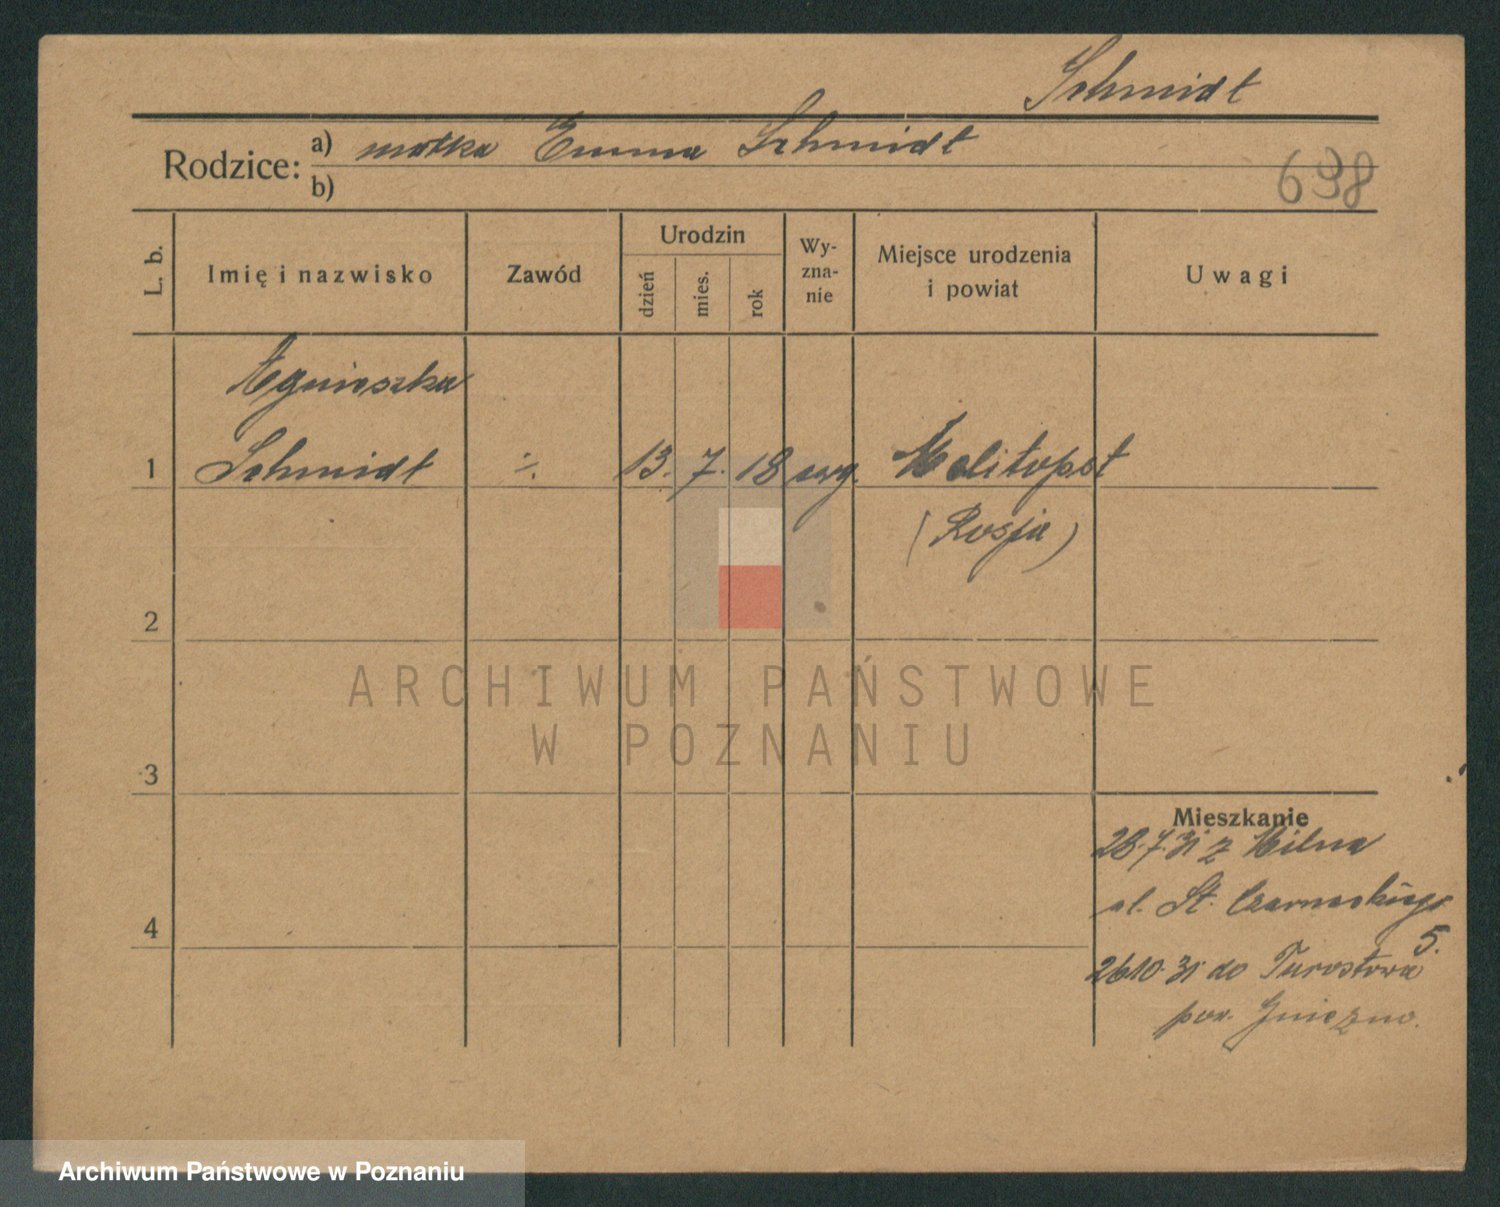 Schmidt
Rodzice: a) matka Emma Schmidt
b)
698
L. b.
Imię i nazwisko
Zawód
Urodzin
dzień
mies.
rok
Wy-
zna-
nie
Miejsce urodzenia
i powiat
Uwagi
Agnieszka
1 Schmidt ·/. 13. 7. 18 ewg. Melitopol
(Rosja)
2
ARCHIWUM PAŃSTWOWE
W POZNANIU
3
Mieszkanie
28.7.31 z
ul. St. Czarneckiego
5.
4
26.10.31 do Turostowa
pow. Gniezno.
Archiwum Państwowe w Poznaniu